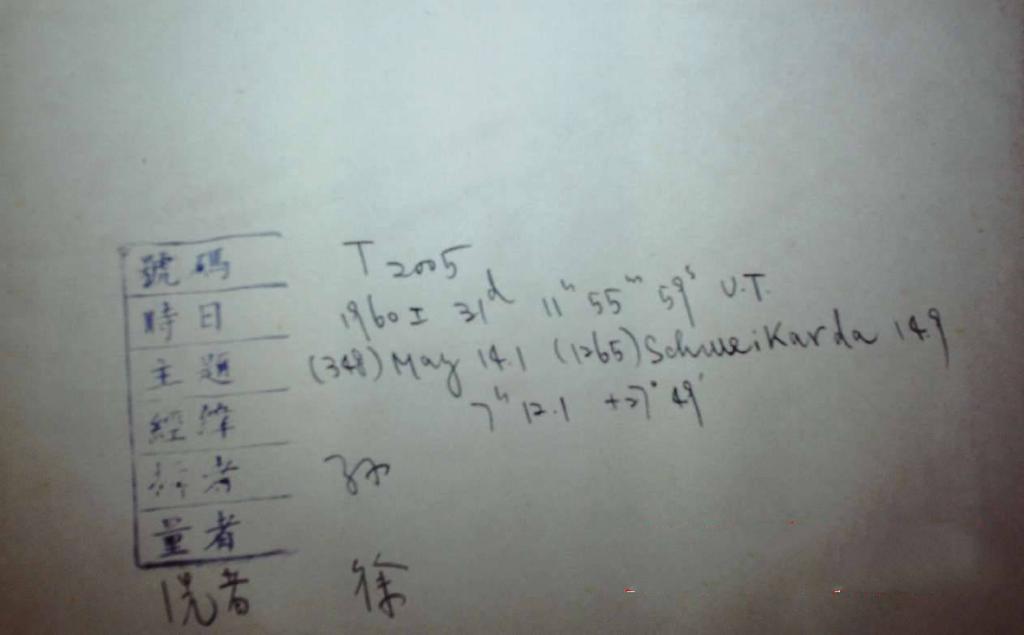 號碼 T 2005
時日 1960 I 31ᵈ 11ʰ 55ᵐ 59ˢ U.T.
主題 (348) May 14.1 (1265) Schweikarda 14.9
經緯 7ʰ 12.1 +27° 49'
者 孙
量者
者 徐